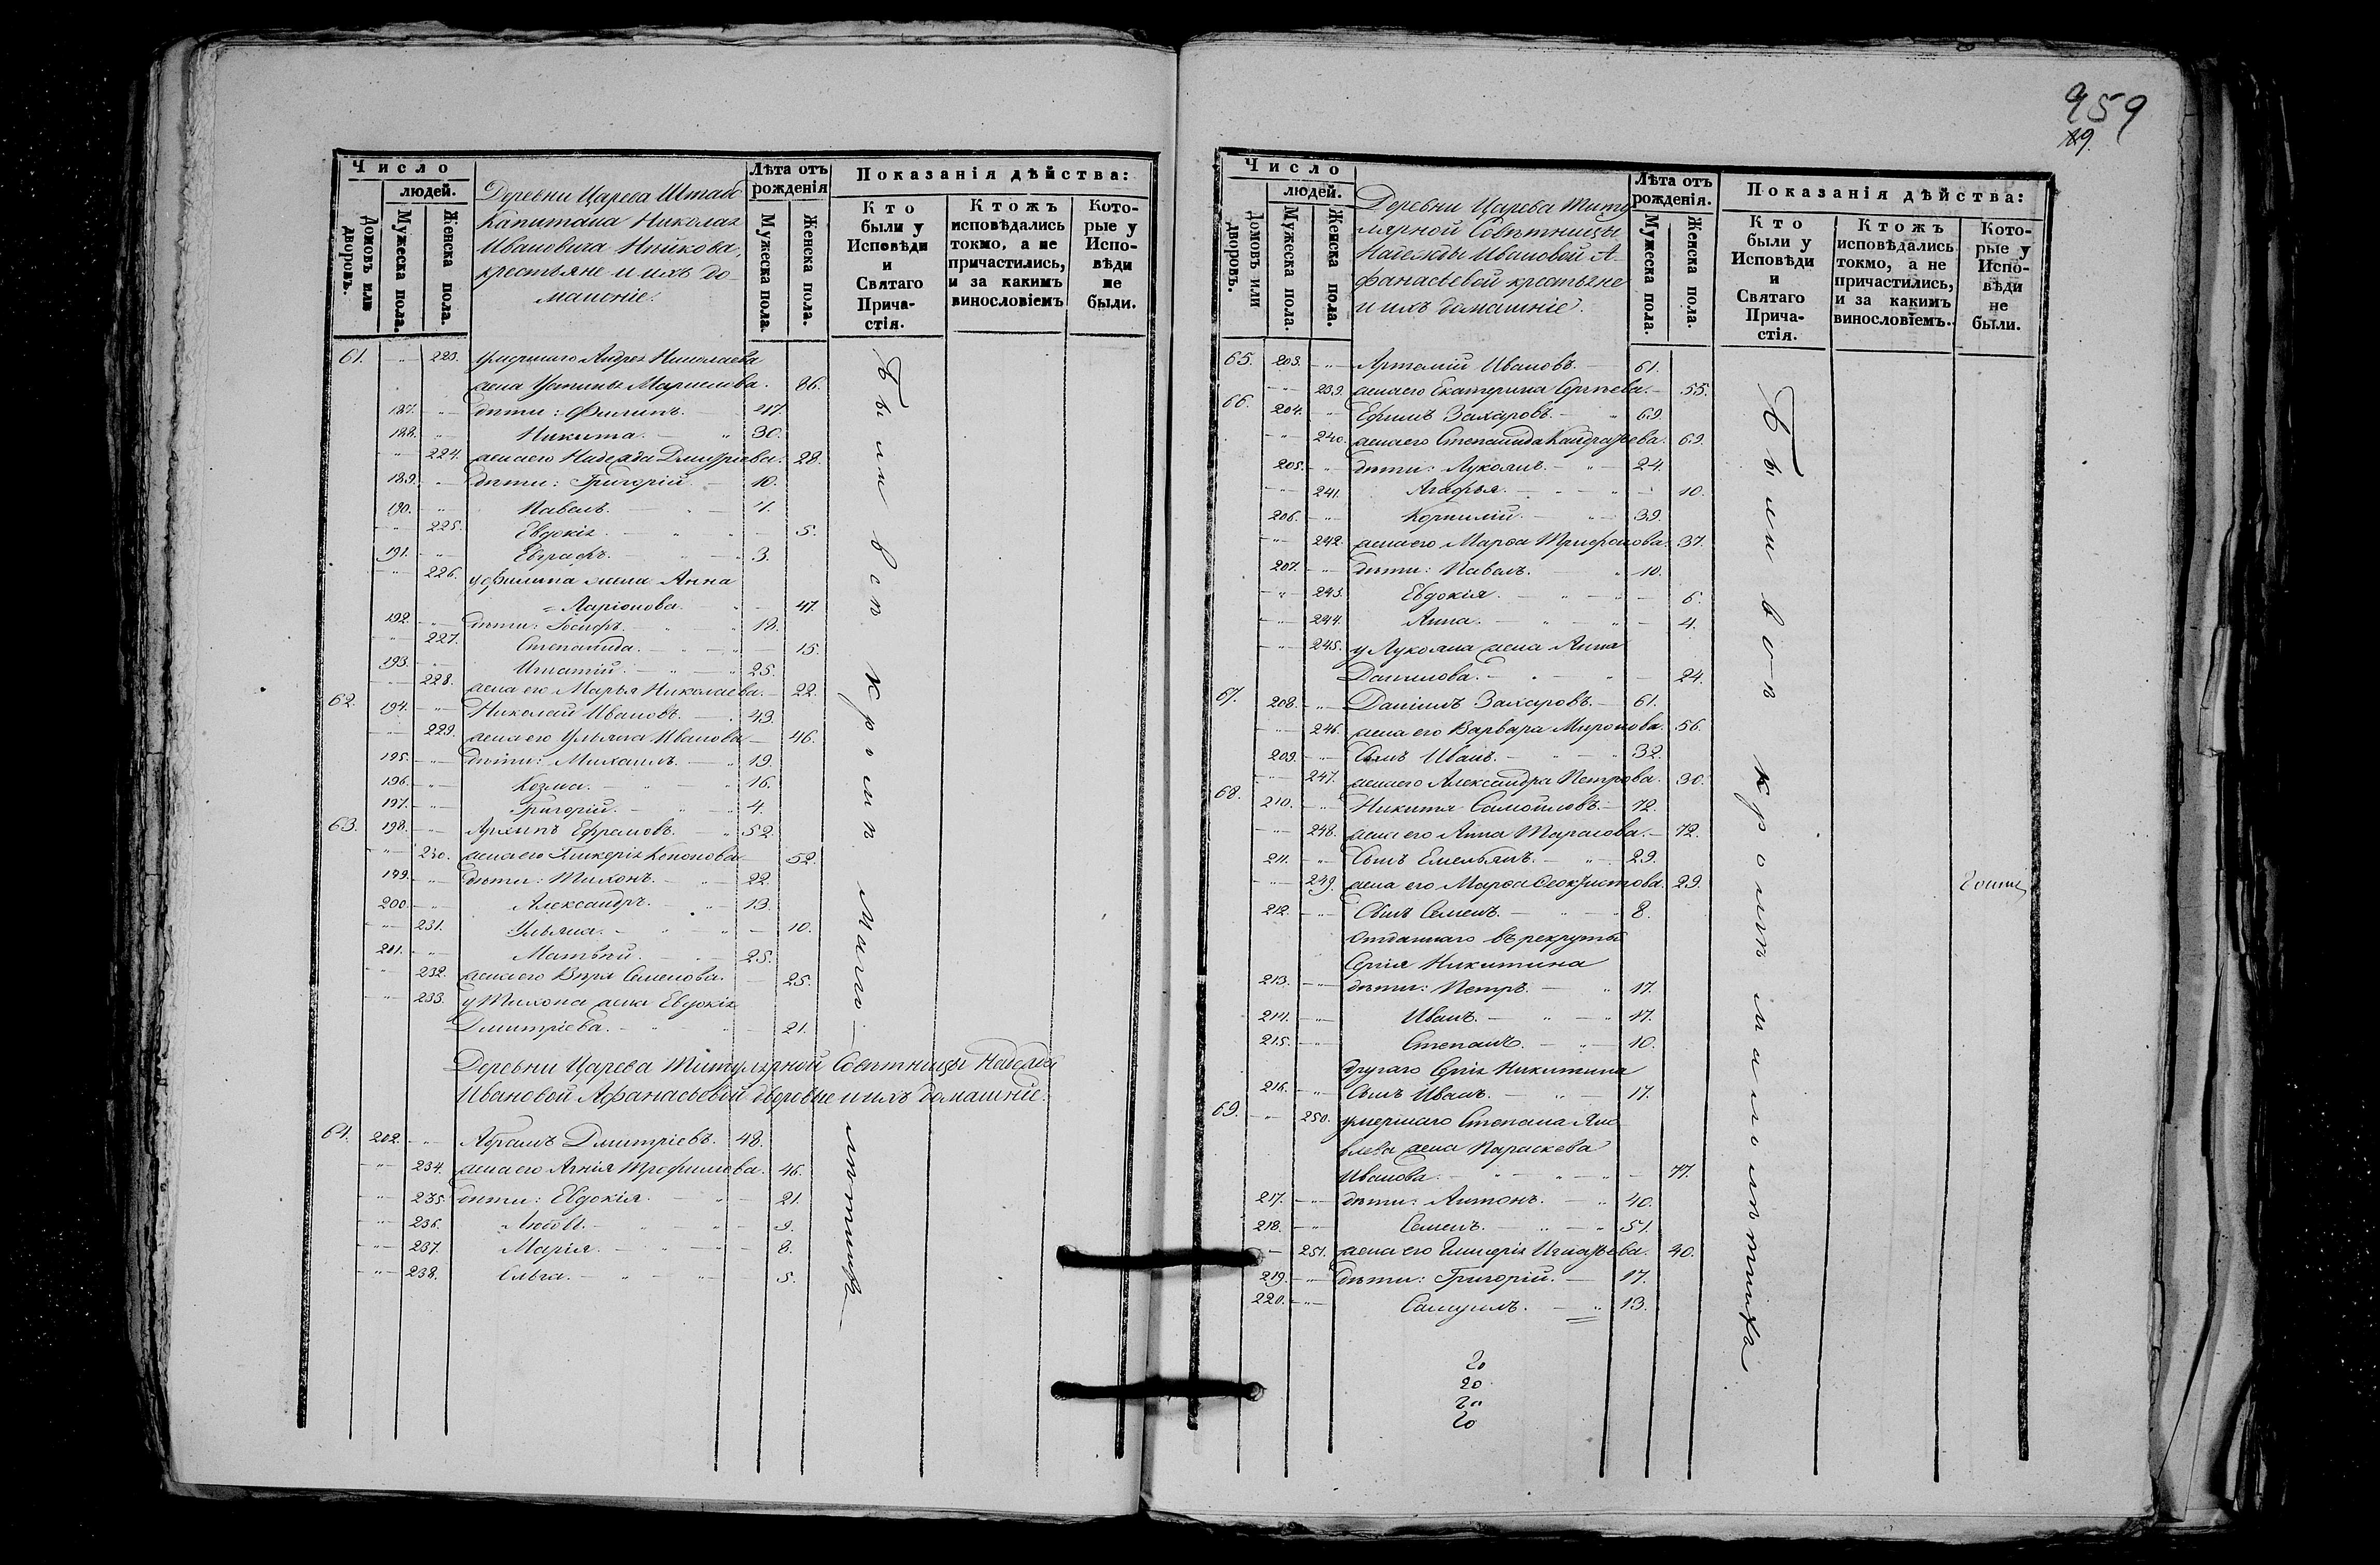 Число
людей.
Домовъ или дворовъ.
Мужеска пола.
Женска пола.
Деревни Царева Штабс
Капитана Николая
Ивановича
крестьяне и ихъ до-
машніе.
Лѣта отъ рожденія
Мужеска пола.
Женска пола.
Показанія дѣйства:
Кто были у Исповѣди и Святаго Прича-стія.
Ктожъ исповѣдались токмо, а не причастились, и за какимъ винословіемъ
Кото-рые у Испо-вѣди не были.
61. 223. умершаго Андрея Николаева
жена Устинья 86.
187. дѣти: Филипъ. 47.
188. Никита. 30.
224. жена его Надежда Дмитріева. 28.
189. дѣти: Григорій. 10.
190. Павелъ. 7.
225. Евдокія. 5.
191. Евграфъ. 3.
226. у Филипа жена Анна
Ларіонова. 47.
192. дѣти: Іосифъ. 18.
227. Степанида. 15.
193. Игнатій. 25.
228. жена его Марья Николаева. 22.
62. 194. Николай Ивановъ. 43.
229. жена его Ульяна Иванова 46.
195. дѣти: Михаилъ. 19.
196. Козма. 16.
197. Григорій. 4.
63. 198. Архипъ Ефремовъ. 52.
230. жена его Гликерія Кононова 52.
199. дѣти: Тихонъ. 22.
200. Александръ. 13.
231. Ульяна. 10.
201. Матвѣй. 25.
232. жена его Вѣра Семенова. 25.
233. у Тихона жена Евдокія
Дмитріева. 21.
Деревни Царева Титулярной Совѣтницы Надежды
Ивановой Афанасьевой дворовые и ихъ домашніе.
64. 202. Абрамъ Дмитріевъ. 48.
234. жена его Агнія Трофимова. 46.
235. дѣти: Евдокія. 21.
236. Любовь. 9.
237. Марія. 8.
238. Ольга. 5.
Были всѣ кромѣ мало-
лѣтнихъ
959
Число
людей.
Домовъ или дворовъ.
Мужеска пола.
Женска пола.
Деревни Царева Титу
лярной Совѣтницы
Надежды Ивановой А-
фанасьевой крестьяне
и ихъ домашніе.
Лѣта отъ рожденія.
Мужеска пола.
Женска пола.
Показанія дѣйства:
Кто были у Исповѣди и Святаго Прича-стія.
Ктожъ исповѣдались токмо, а не причастились, и за какимъ винословіемъ.
Кото-рые у Испо-вѣди не были.
65. 203. Артемій Ивановъ. 61.
239. жена его Екатерина Сергѣева. 55.
66. 204. Ефимъ Захаровъ. 69.
240. жена его Степанида Кондратьева. 69.
205. дѣти: Лукоянъ. 24.
241. Агафья. 10.
206. Корнилій. 39.
242. жена его Марѳа Трифонова. 37.
207. дѣти: Павелъ. 10.
243. Евдокія. 6.
244. Анна. 4.
245. у Лукояна жена Анна
Данилова. 24.
67. 208. Даніилъ Захаровъ. 61.
246. жена его Варвара Миронова. 56.
209. Сынъ Иванъ. 32.
247. жена его Александра Петрова. 30.
68. 210. Никита Самойловъ. 72.
248. жена его Анна Тарасова. 72.
211. Сынъ Емельянъ. 29.
249. жена его Марѳа Ѳеоктистова. 29.
212. Сынъ Семенъ. 8.
Отданнаго въ рекруты
Сергія Никитина
213. дѣти: Петръ. 17.
214. Иванъ. 17.
215. Степанъ. 10.
другаго Сергія Никитина
216. Сынъ Иванъ. 17.
69. 250. умершаго Степана Яко
влева жена Параскева
Иванова. 77.
217. дѣти: Антонъ. 40.
218. Семенъ. 51.
251. жена его Игнатьева. 40.
219. дѣти: Григорій. 17.
220. Самуилъ. 13.
Были всѣ кромѣ малолѣтнихъ
20
20
20
20